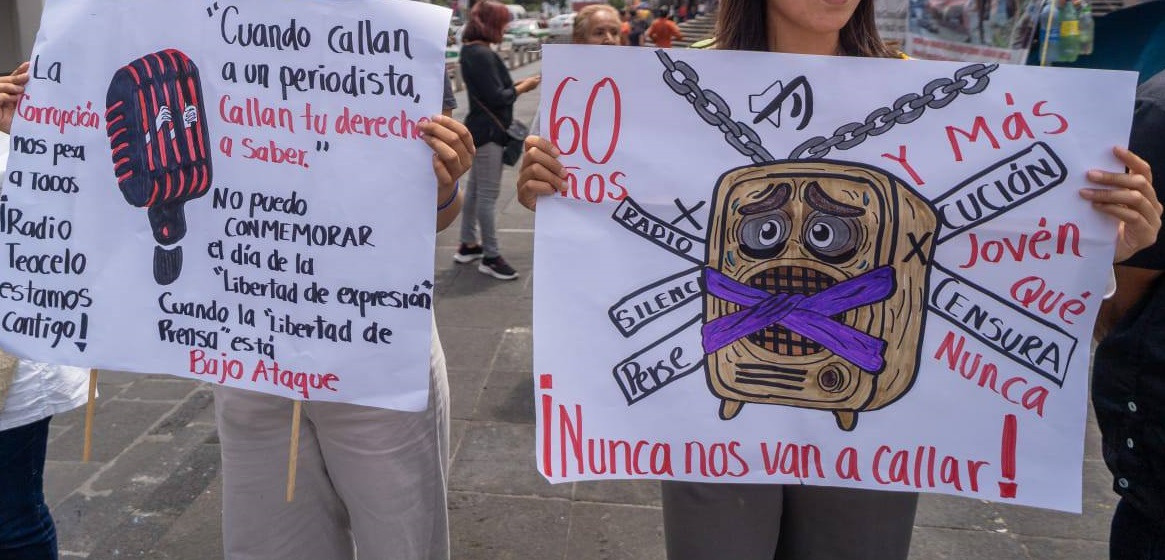 "Cuando callan
a un periodista,
Callan tu derecho
a Saber."
La
Corrupción
nos pesa
a Todos
¡Radio
Teocelo
estamos
Contigo!
No puedo
CONMEMORAR
el día de la
"Libertad de expresión"
Cuando la "Libertad de
Prensa" está
Bajo Ataque
60
años
Y Más
Jovén
Qué
Nunca
RADIO
SILENCI
Perse
CUCIÓN
CENSURA
¡Nunca nos van a callar!